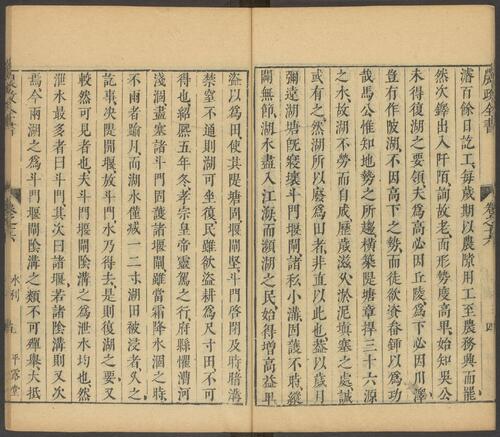 濬百餘日訖工每歲期以農隙用工至農務興而罷
然次鐸出入阡陌詢故老而形勢度高卑始知吳公
未得復湖之要領夫爲高必因丘陵爲下必因川澤
豈有作陂湖不因高下之勢而徒欲資畚鍤以爲功
哉馬公惟知地勢之所趨橫築隄塘章捍三十六源
之水故湖不勞而自成歷歲滋久淤泥填塞之處誠
或有之然湖所以廢爲田者非直以此也葢以歲月
彌遠湖塘旣寖壞斗門堰閘諸私小溝固護不時縱
閘無節湖水盡入江海而瀕湖之民始得增高益卑
盜以爲田使其隄塘固堰閘堅斗門啓閉及時曁溝
禁窒不通則湖可坐復民雖欲盜耕爲尺寸田不可
得也紹熙五年冬孝宗皇帝靈駕之行府縣懼漕河
淺涸盡塞諸斗門固護諸堰閘雖當霜降水涸之時
不雨者踰月而湖水僅減一二寸湖田被浸者久之
訖事决隄開堰放斗門水乃得去是則復湖之要又
較然可見者也夫斗門堰閘陰溝之爲泄水均也然
泄水最多者曰斗門其次曰諸堰若諸陰溝則又次
焉今兩湖之爲斗門堰閘陰溝之類不可殫舉大抵
農政全書
水利
平露堂